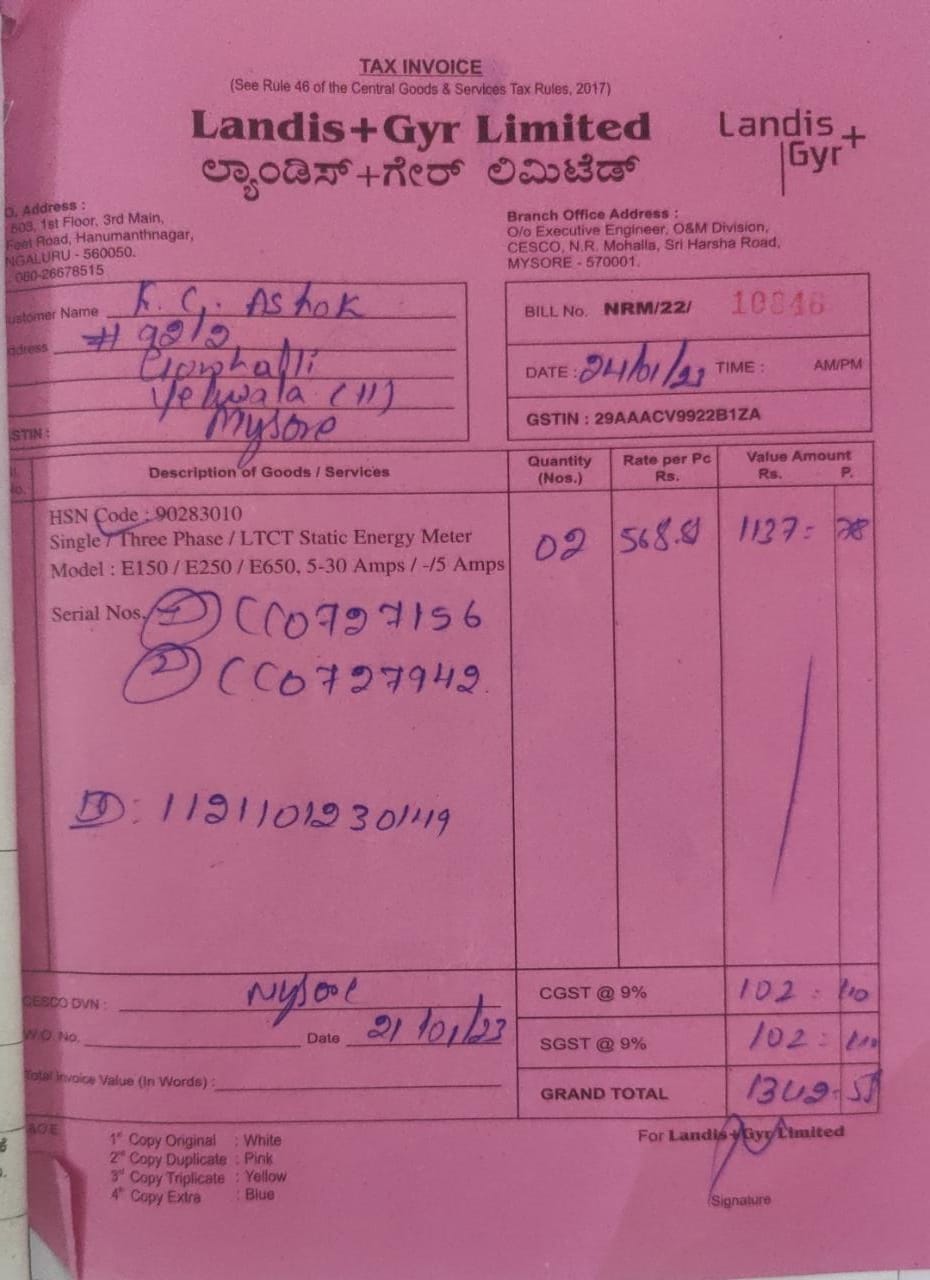 TAX INVOICE
(See Rule 46 of the Central Goods & Services Tax Rules, 2017)
Landis+Gyr Limited
ಲ್ಯಾಂಡಿಸ್+ಗೇರ್ ಲಿಮಿಟೆಡ್
Landis
Gyr+
Address :
1st Floor, 3rd Main,
Road, Hanumanthnagar,
NGALURU - 560050.
080-26678515
Branch Office Address :
O/o Executive Engineer, O&M Division,
CESCO, N.R. Mohalla, Sri Harsha Road,
MYSORE - 570001.
ustomer Name K. G. Ashok
ddress # 92/2
Yelwala (H)
Mysore
STIN :
BILL No. NRM/22/ 10846
DATE : 24/01/23 TIME : AM/PM
GSTIN : 29AAACV9922B1ZA
Description of Goods / Services
Quantity (Nos.)
Rate per Pc Rs.
Value Amount Rs. P.
HSN Code : 90283010
Single / Three Phase / LTCT Static Energy Meter
Model : E150 / E250 / E650, 5-30 Amps / -/5 Amps
02 568.89 1137 = 78
Serial Nos. 1 CC0727156
2 CC0727942
ID: 1121101230149
CESCO DVN : Mysore
W.O. No. Date 21/01/23
Total Invoice Value (In Words) :
CGST @ 9% 102 = 40
SGST @ 9% 102 = 40
GRAND TOTAL 1342.58
1st Copy Original : White
2nd Copy Duplicate : Pink
3rd Copy Triplicate : Yellow
4th Copy Extra : Blue
For Landis+Gyr Limited
Signature